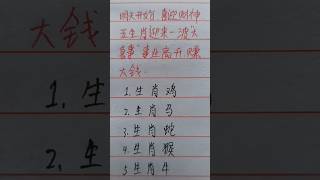 明天开始 喜迎财神
五生肖迎来一波"大
喜事"事业高升.赚
大钱.
1. 生肖鸡
2. 生肖马
3. 生肖蛇
4. 生肖猴
5 生肖牛
大钱
1. 生
2. 生